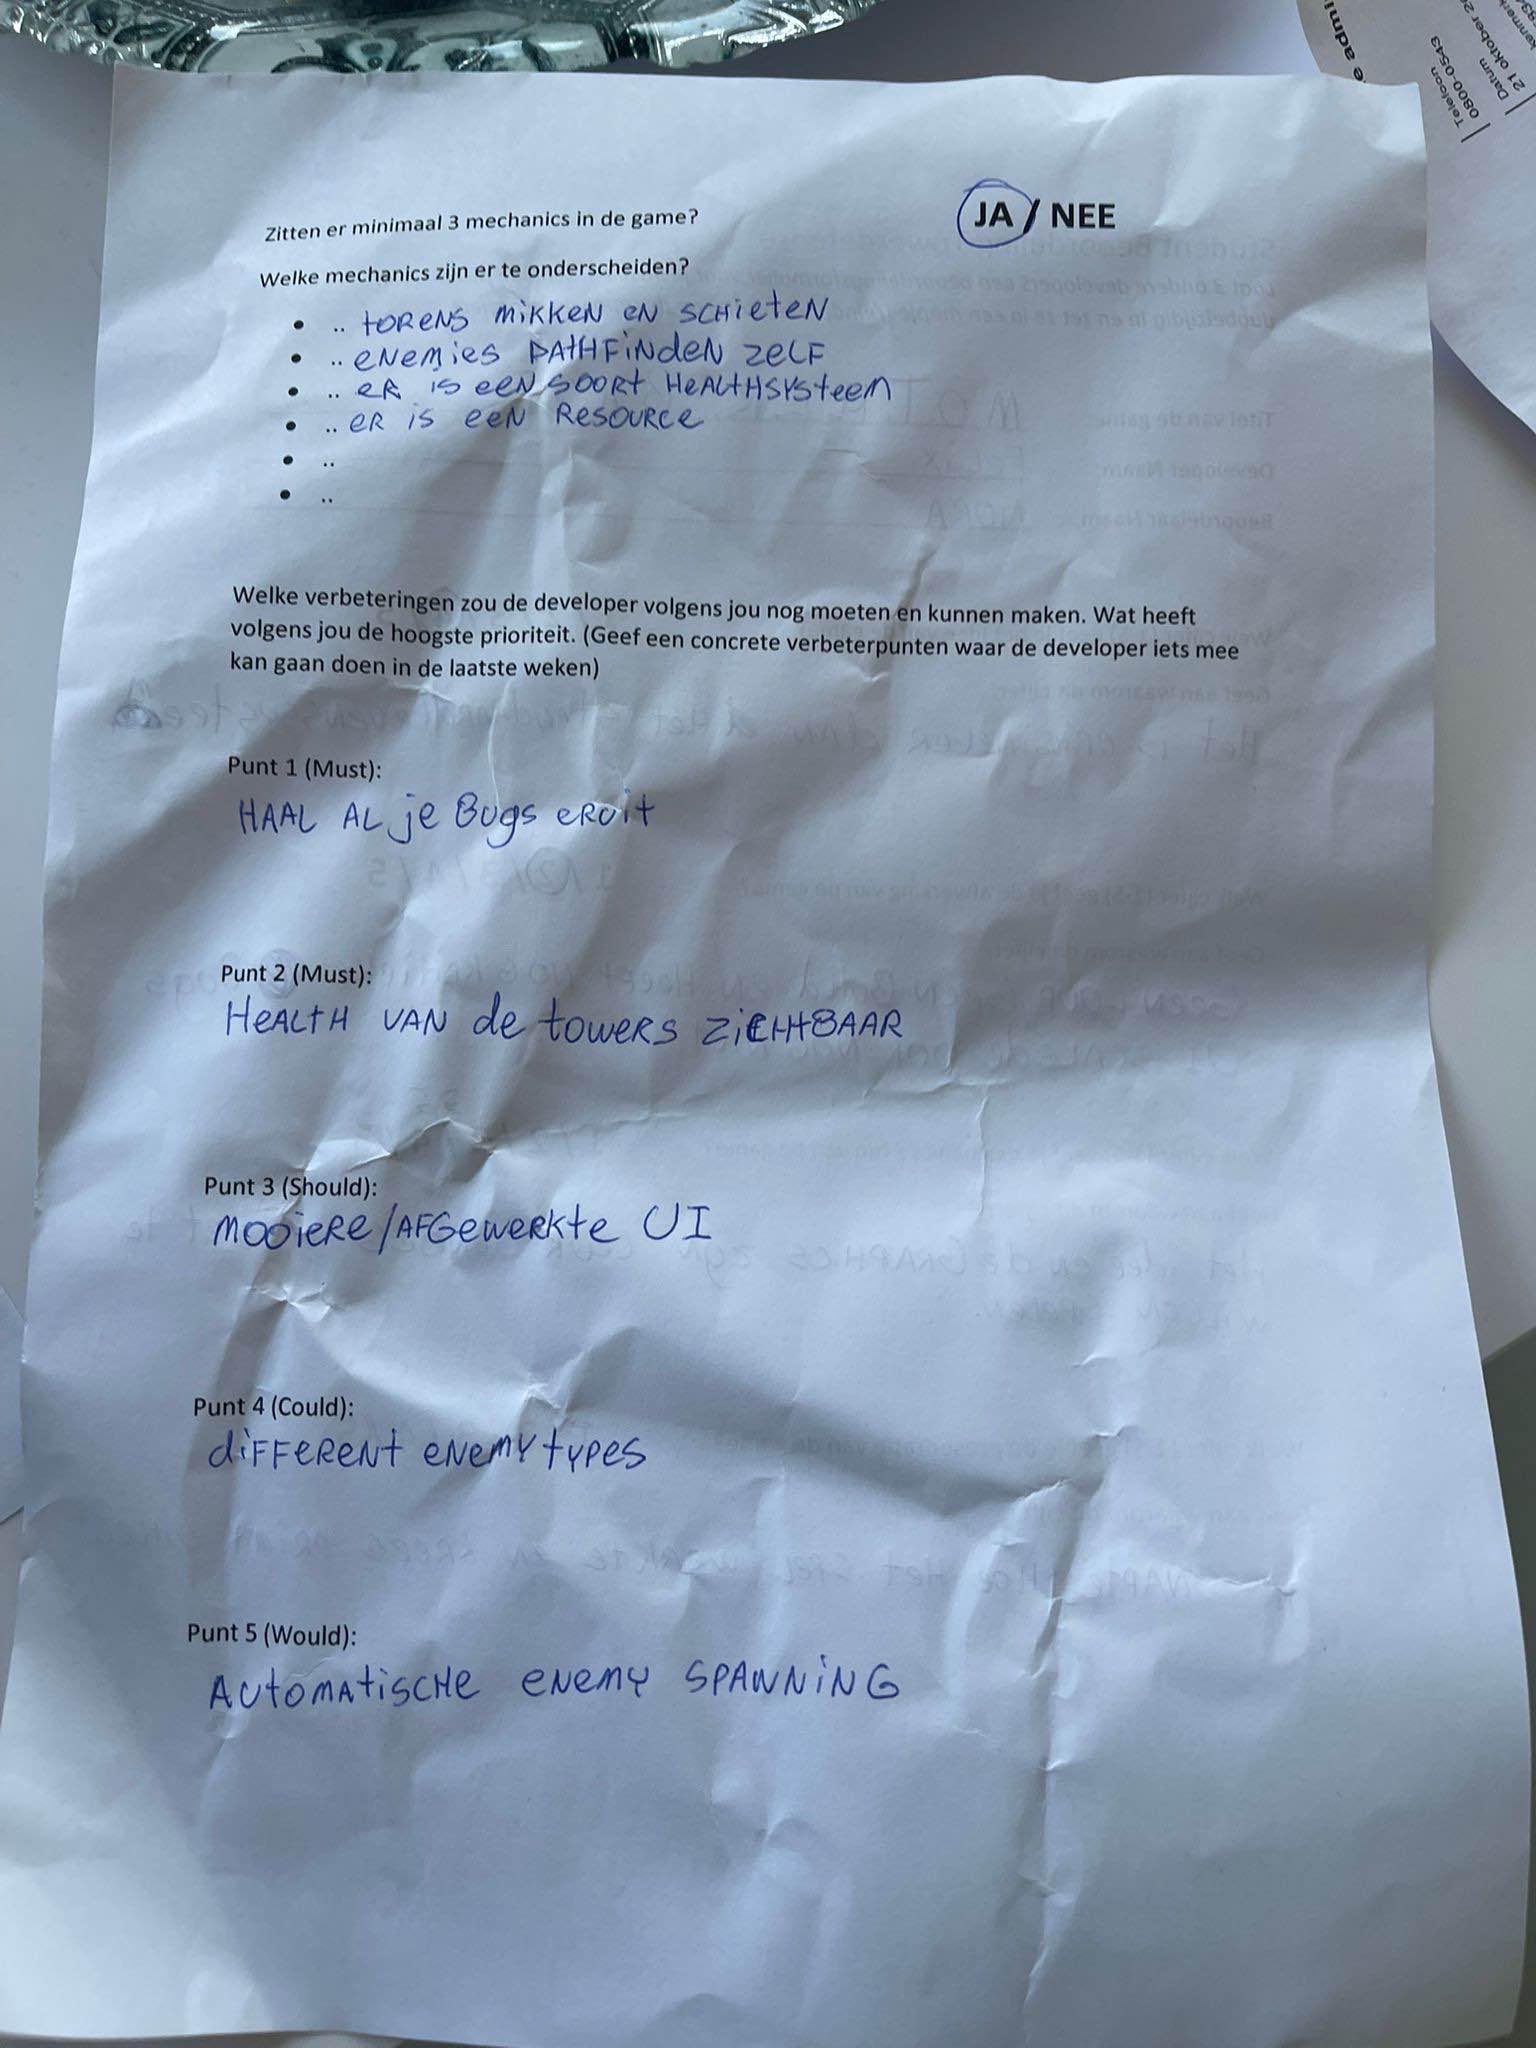 Zitten er minimaal 3 mechanics in de game?
JA / NEE
Welke mechanics zijn er te onderscheiden?
• .. TORENS MIKKEN EN SCHIETEN
• .. ENEMIES PATHFINDEN ZELF
• .. ER IS EEN SOORT HEALTHSYSTEEM
• .. ER IS EEN RESOURCE
• ..
• ..
Welke verbeteringen zou de developer volgens jou nog moeten en kunnen maken. Wat heeft
volgens jou de hoogste prioriteit. (Geef een concrete verbeterpunten waar de developer iets mee
kan gaan doen in de laatste weken)
Punt 1 (Must):
HAAL AL je Bugs eruit
Punt 2 (Must):
HEALTH VAN de towers ZICHTBAAR
Punt 3 (Should):
MOOIERE/AFGEWERKTE UI
Punt 4 (Could):
different enemy types
Punt 5 (Would):
AUTOMATISCHE ENEMY SPAWNING
Telefoon
0800-0543
Datum
21 oktober